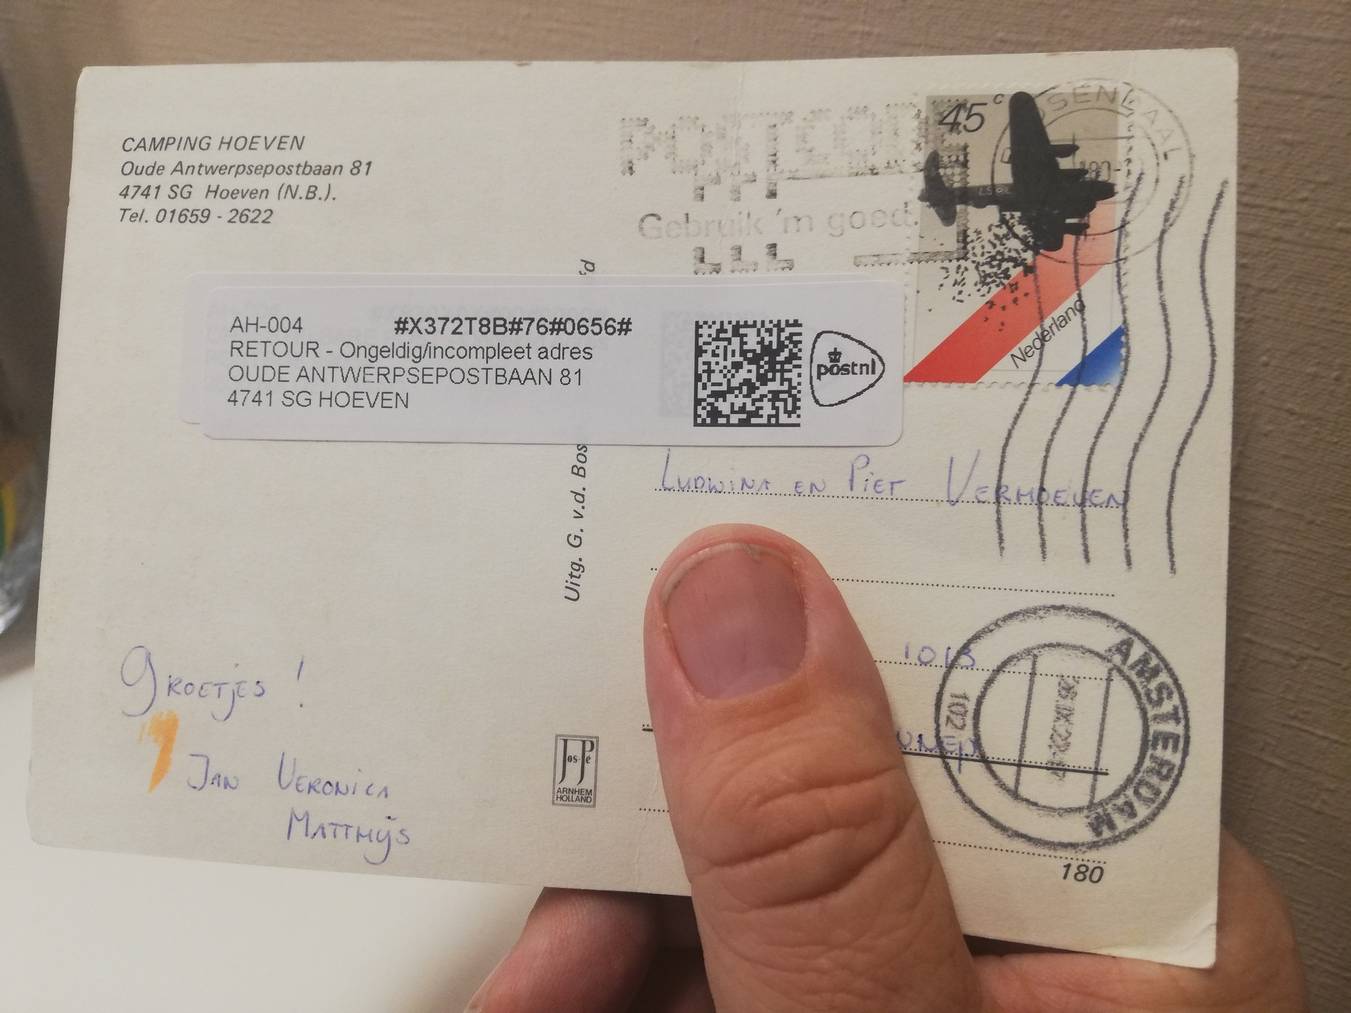 CAMPING HOEVEN
Oude Antwerpsepostbaan 81
4741 SG Hoeven (N.B.).
Tel. 01659 - 2622
POSTCODE
Gebruik 'm goed.
45 c
Nederland
AH-004 #X372T8B#76#0656#
RETOUR - Ongeldig/incompleet adres
OUDE ANTWERPSEPOSTBAAN 81
4741 SG HOEVEN
postnl
Uitg. G. v.d. Bos
Ludwina en Piet Vermoeven
Groetjes !
Jan Veronica
Matthijs
Jos-Pé
ARNHEM
HOLLAND
AMSTERDAM
102
180